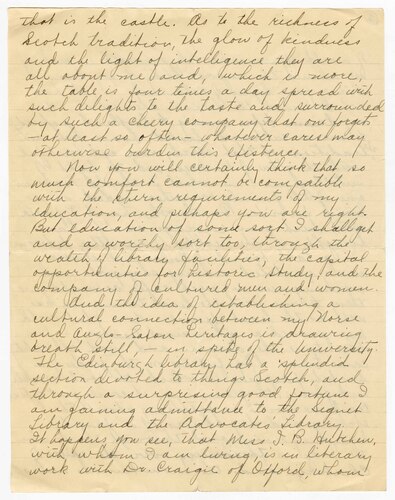 that is the castle. As to the richness of
Scotch tradition, the glow of kindness
and the light of intelligence they are
all about me and, which is more,
the table is four times a day spread with
such delights to the taste and surrounded
by such a cheery company that one forgets
- at least so often - whatever cares may
otherwise burden this existence.
Now you will certainly think that so
much comfort cannot be compatible
with the stern requirements of my
education, and perhaps you are right.
But education of some sort I shall get
and a worthy sort too, through the
wealth of library facilities, the capital
opportunities for historic study and the
company of cultured men and women.
And the idea of establishing a
cultural connection between my Norse
and Anglo-Saxon heritages is drawing
breath still, - in spite of the University.
The Edinburgh library has a splendid
section devoted to things Scotch, and
through a surprising good fortune I
am gaining admittance to the Signet
Library and the Advocates Library.
It happens, you see, that Miss J. B. Hutchen,
with whom I am living, is in literary
work with Dr. Craigie of Oxford, whom